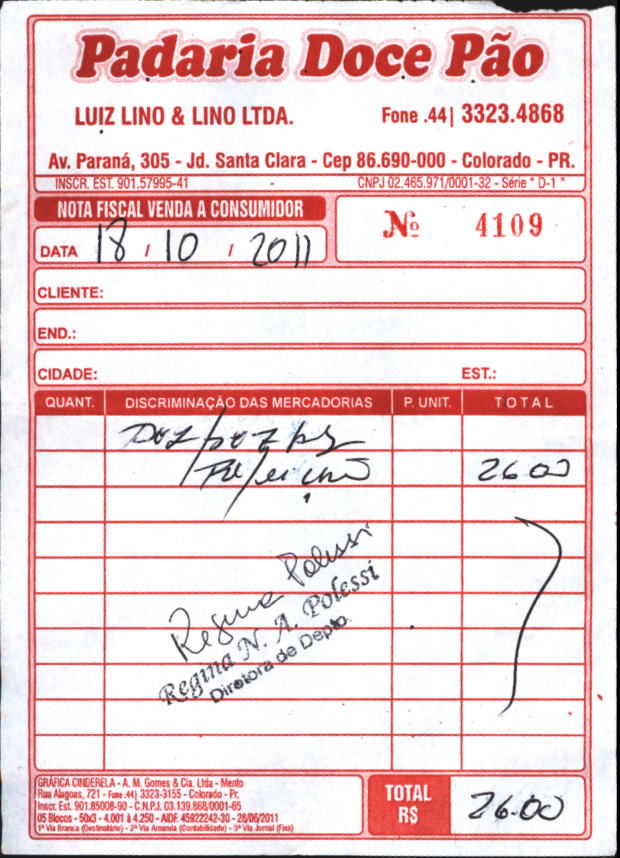 Padaria Doce Pão
LUIZ LINO & LINO LTDA. Fone .44| 3323.4868
Av. Paraná, 305 - Jd. Santa Clara - Cep 86.690-000 - Colorado - PR.
INSCR. EST. 901.57995-41 - CNPJ 02.465.971/0001-32 - Série " D-1 "
NOTA FISCAL VENDA A CONSUMIDOR
Nº 4109
DATA 18 / 10 / 2011
CLIENTE:
END.:
CIDADE: EST.:
QUANT. DISCRIMINAÇÃO DAS MERCADORIAS P. UNIT. TOTAL
Despezas
Refeição 26.00
Regina Polessi
Regina N. A. Polessi
Diretora de Depto.
GRÁFICA CINDERELA - A. M. Gomes & Cia. Ltda - Mento
Rua Alagoas, 721 - Fone .44| 3323-3155 - Colorado - Pr.
Inscr. Est. 901.85008-90 - C.N.P.J. 03.139.868/0001-65
05 Blocos - 50x3 - 4.001 à 4.250 - AIDF. 45922242-30 - 28/06/2011
1ª Via Branca (Destinatário) - 2ª Via Amarela (Contabilidade) - 3ª Via Jornal (Fixa)
TOTAL R$ 26.00